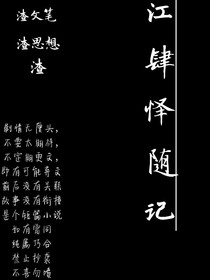 江肆怿随记
渣文笔
渣思想
渣
剧情无厘头,
不要太期待,
不定期更文,
即有可能弃文
前后没有关联
故事没有衔接
是个短篇小说
如有雷同
纯属巧合
禁止抄袭
不喜勿喷